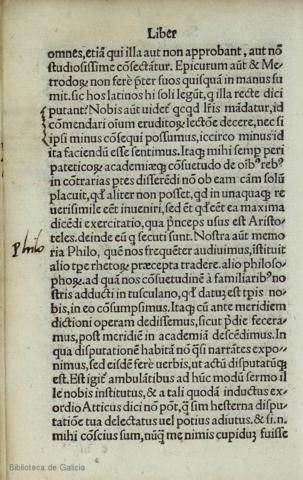 Liber
omnes, etiā qui illa aut non approbant, aut nō
studiosissime cōsectātur. Epicurum aūt & Me
trodoꝝ non ferè p̄ter suos quisquā in manus su
mit. sic hos latinos hi soli legūt, q illa recte dici
putant? Nobis aūt uideť qcqd lr̄is mādatur, id
cōmendari oīum eruditoꝝ lectiōe decere, nec si
ipsi minus cōsequi possumus, iccirco minus id
ita faciendū esse sentimus. Itaqꝫ mihi semp peri
pateticoꝝ academiæqꝫ cōsuetudo de oīb⁹ reb⁹
in cōtrarias ptes disserēdi nō ob eam cām solū
placuit, qđ aliter non posset, qd in unaquaqꝫ re
uerisimile eēt inueniri, sed ēt qđ eēt ea maxima
dicēdi exercitatio, qua p̄nceps usus est Aristo-
teles. deinde eū q secuti sunt. Nostra aūt memo
Philo
ria Philo, quē nos frequēter audiuimus, īstituit
alio tpe rhetoꝝ præcepta tradere. alio philoso-
phoꝝ. ad quā nos cōsuetudinē à familiarib⁹ no
stris adducti in tusculano, qđ datuꝫ est tpis no-
bis, in eo cōsumpsimus. Itaqꝫ cū ante meridiem
dictioni operam dedissemus, sicut p̄die fecera-
mus, post meridiē in academiā descēdimus. In
qua disputationē habitā nō q̄si narrātes expo-
nimus, sed eisdē ferè uerbis, ut actū disputatūqꝫ
est. Est igiť ambulātibus ad hūc modū sermo il
le nobis institutus, & a tali quodā inductus ex-
ordio Atticus dici nō pōt, q̄ sim hesterna dispu-
tatiōe tua delectatus uel potius adiutus. & si. n.
mihi cōscius sum, nūq̄ me nimis cupiduꝫ fuisse
Biblioteca de Galicia